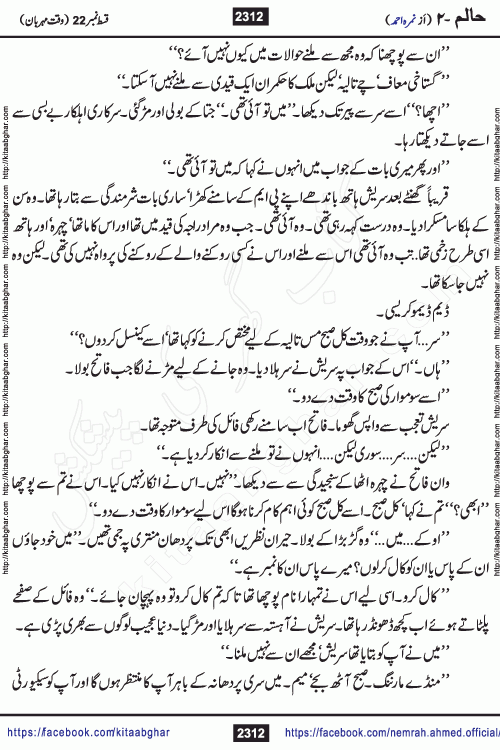 قسط نمبر 22 (وقت مہربان)
2312
حالم -۲ (از نمرہ احمد)
’’ان سے پوچھنا کہ وہ مجھ سے ملنے حوالات میں کیوں نہیں آئے؟‘‘
’’گستاخی معاف‘ چے تالیہ‘ لیکن ملک کا حکمران ایک قیدی سے ملنے نہیں آ سکتا۔‘‘
’’اچھا؟‘‘ اسے سر سے پیر تک دیکھا۔ ’’میں تو آئی تھی۔‘‘ جتا کے بولی اور مڑ گئی۔ سرکاری اہلکار بے بسی سے
اسے جاتے دیکھتا رہا۔
’’اور پھر میری بات کے جواب میں انہوں نے کہا کہ میں تو آئی تھی۔‘‘
قریباً گھنٹے بعد سریش ہاتھ باندھے اپنے پی ایم کے سامنے کھڑا‘ ساری بات شرمندگی سے بتا رہا تھا۔ وہ سن
کے ہلکا سا مسکرا دیا۔ وہ درست کہہ رہی تھی۔ وہ آئی تھی۔ جب وہ مراد راجہ کی قید میں تھا اور اس کا ماتھا‘ چہرہ‘ اور ہاتھ
اسی طرح زخمی تھا.. تب وہ آئی تھی اس سے ملنے اور اس نے کسی روکنے والے کے روکنے کی پرواہ نہیں کی تھی۔ لیکن وہ
نہیں جا سکا تھا۔
ڈیم ڈیموکریسی۔
’’سر... آپ نے جو وقت کل صبح مس تالیہ کے لیے مختص کرنے کو کہا تھا‘ اسے کینسل کر دوں؟‘‘
’’ہاں۔‘‘ اس کے جواب پہ سریش نے سر ہلا دیا۔ وہ جانے کے لیے مڑنے لگا جب فاتح بولا۔
’’اسے سوموار کی صبح کا وقت دے دو۔‘‘
سریش تعجب سے واپس گھوما۔ فاتح اب سامنے رکھی فائل کی طرف متوجہ تھا۔
’’لیکن.... سر.... سوری لیکن.... انہوں نے تو ملنے سے انکار کر دیا ہے۔‘‘
وان فاتح نے چہرہ اٹھا کے سنجیدگی سے اسے دیکھا۔ ’’نہیں۔ اس نے انکار نہیں کیا۔ اس نے تم سے پوچھا
’ابھی؟‘ تم نے کہا‘ کل صبح۔ اسے کل صبح کوئی اہم کام کرنا ہو گا اس لیے سوموار کا وقت دے دو۔‘‘
’’اوکے... میں...‘‘ وہ گڑبڑا کے بولا۔ حیران نظریں ابھی تک پردھان منتری پہ جمی تھیں۔ ’’میں خود جاؤں
ان کے پاس یا ان کو کال کر لوں؟ میرے پاس ان کا نمبر ہے۔‘‘
’’کال کرو۔ اسی لیے اس نے تمہارا نام پوچھا تھا تا کہ تم کال کرو تو وہ پہچان جائے۔‘‘ وہ فائل کے صفحے
پلٹاتے ہوئے اب کچھ ڈھونڈ رہا تھا۔ سریش نے آہستہ سے سر ہلایا اور مڑ گیا۔ دنیا عجیب لوگوں سے بھری پڑی ہے۔
’’میں نے آپ کو بتایا تھا سریش‘ مجھے ان سے نہیں ملنا۔‘‘
’’منڈے مارننگ۔ صبح آٹھ بجے‘ میم۔ میں سری پردھانہ کے باہر آپ کا منتظر ہوں گا اور آپ کو سیکیورٹی
http://kitaabghar.com
https://facebook.com/kitaabghar
2312
https://facebook.com/nemrah.ahmed.official/